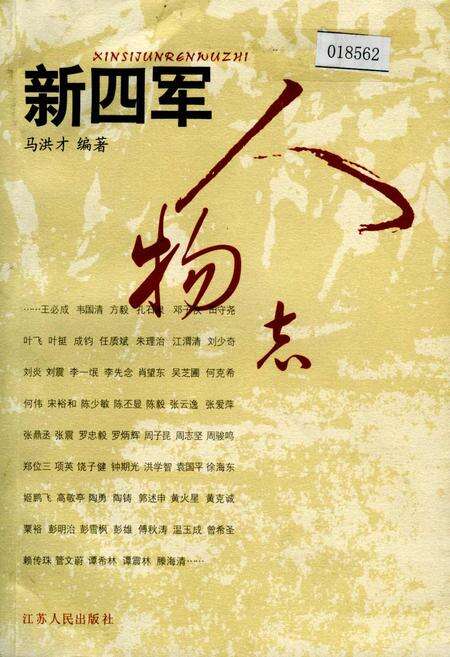 XINSIJUNRENWUZHI
018562
新四军
人物志
马洪才 编著
……王必成 韦国清 方毅 孔石泉 邓子恢 田守尧
叶飞 叶挺 成钧 任质斌 朱理治 江渭清 刘少奇
刘炎 刘震 李一氓 李先念 肖望东 吴芝圃 何克希
何伟 宋裕和 陈少敏 陈丕显 陈毅 张云逸 张爱萍
张鼎丞 张震 罗忠毅 罗炳辉 周子昆 周志坚 周骏鸣
郑位三 项英 饶子健 钟期光 洪学智 袁国平 徐海东
姬鹏飞 高敬亭 陶勇 陶铸 郭述申 黄火星 黄克诚
粟裕 彭明治 彭雪枫 彭雄 傅秋涛 温玉成 曾希圣
赖传珠 管文蔚 谭希林 谭震林 滕海清……
江苏人民出版社